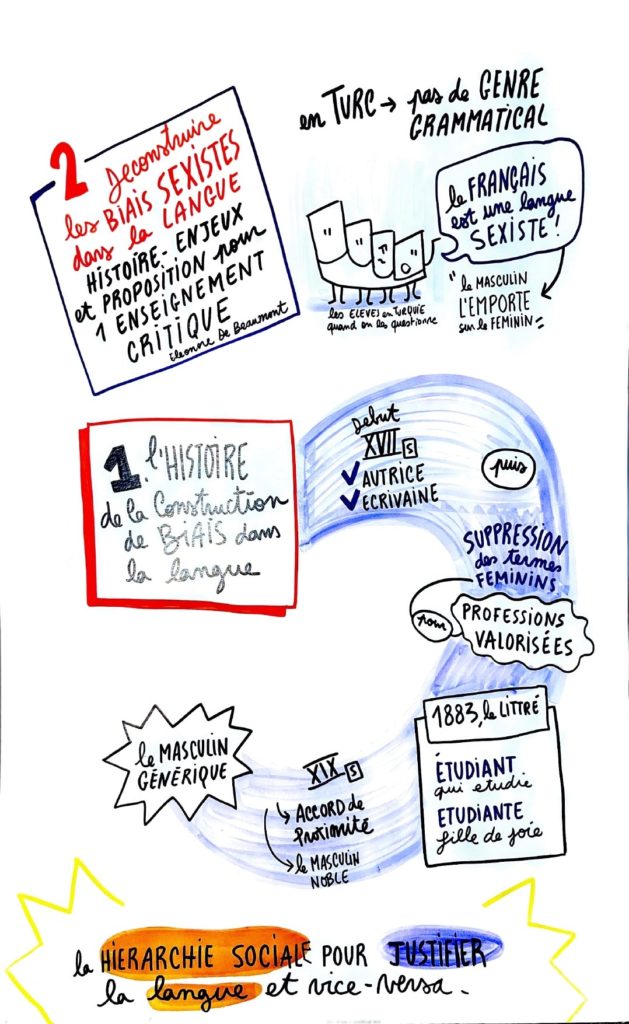 2 Deconstruire
les BIAIS SEXISTES
dans la LANGUE
HISTOIRE - ENJEUX
et PROPOSITION pour
1 ENSEIGNEMENT
CRITIQUE
Eléonore De Beaumont
en TURC → pas de GENRE
GRAMMATICAL
le FRANÇAIS
est une langue
SEXISTE !
les ELEVES en TURQUIE
quand on les questionne
"le MASCULIN
L'EMPORTE
sur le FEMININ"
1. l'HISTOIRE
de la Construction
de BIAIS dans
la langue
Debut
XVII s
AUTRICE
ECRIVAINE
puis
SUPPRESSION
des termes
FEMININS
pour
PROFESSIONS
VALORISÉES
1883, le LITTRÉ
ÉTUDIANT
qui etudie
ETUDIANTE
fille de joie
XIX s
↳ ACCORD de
Proximité
→ le MASCULIN
NOBLE
le MASCULIN
GÉNÉRIQUE
la HIERARCHIE SOCIALE POUR JUSTIFIER
la langue et vice-versa.